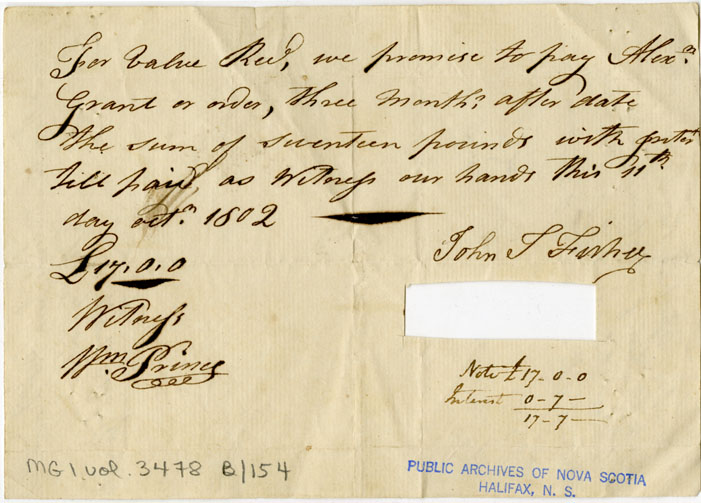 For Value Recd, we promise to pay Alexr.
Grant or order, three Months after date
the sum of seventeen pounds with intert
till paid as Witness our hands this 11th
day octr. 1802
£17.0.0
John T Fisher
Witness
Wm Prince
Note £17-0-0
Interest 0-7-
17-7-
MG1 vol. 3478 B/154
PUBLIC ARCHIVES OF NOVA SCOTIA
HALIFAX, N. S.